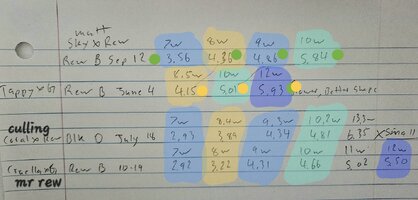 matt
Sky x Rew 7w 8w 9w 10w
Rew B Sep 12 3,56 4,36 4,86 5,84
8.5w 10w 12w
Tappy x G Rew B June 4 4.15 5,01 5,93 Better Shape
culling 7w 8.4w 9,3w 10,2w
x Rew Blk D July 16 2,93 3,89 4,34 4,81 6.35 x Small
7w 8w 9w 10w 11w 12w
Rew B 10-19 2,92 3,22 4,31 4,66 5,02 5,50
mr rew